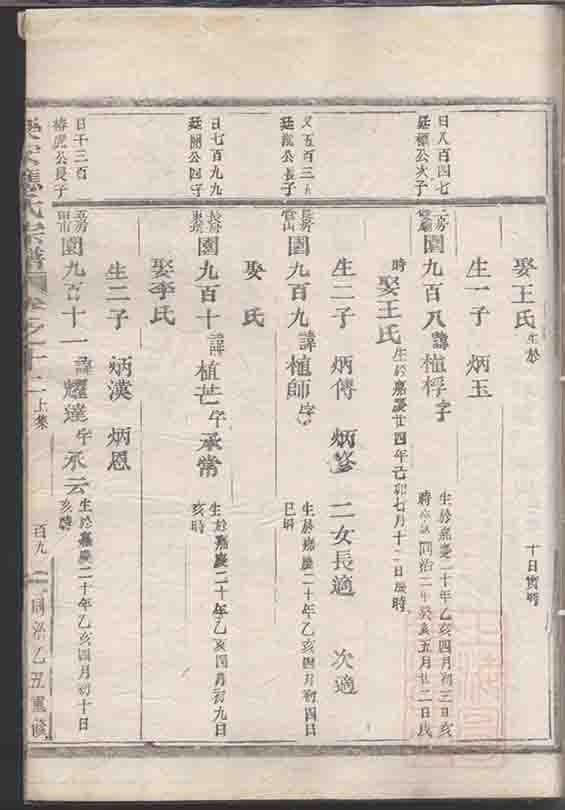 娶王氏 生於
十日寅時
生一子 炳玉
日八百四七
廷標公次子
園九百八 諱植桴 字
生於嘉慶二十年乙亥四月初三日亥
時 同治二年癸亥五月廿二日戌
時 娶王氏 生於嘉慶廿四年己卯七月十二日辰時
生二子 炳傳 炳修 二女長適 次適
又五百三
廷 公長子
長房
園九百九 諱植師 字
生於嘉慶二十年乙亥四月初四日
巳時
娶 氏
日七百九九
廷開公四子
園九百十 諱植芒 字承常
生於嘉慶二十年乙亥四月初九日
亥時
娶李氏
生二子 炳漢 炳恩
日千三百
椿虎公長子
園九百十一 諱耀達 字承云
生於嘉慶二十年乙亥四月初十日
亥時
氏宗譜 卷之十二 上集 百九 同治乙丑重修